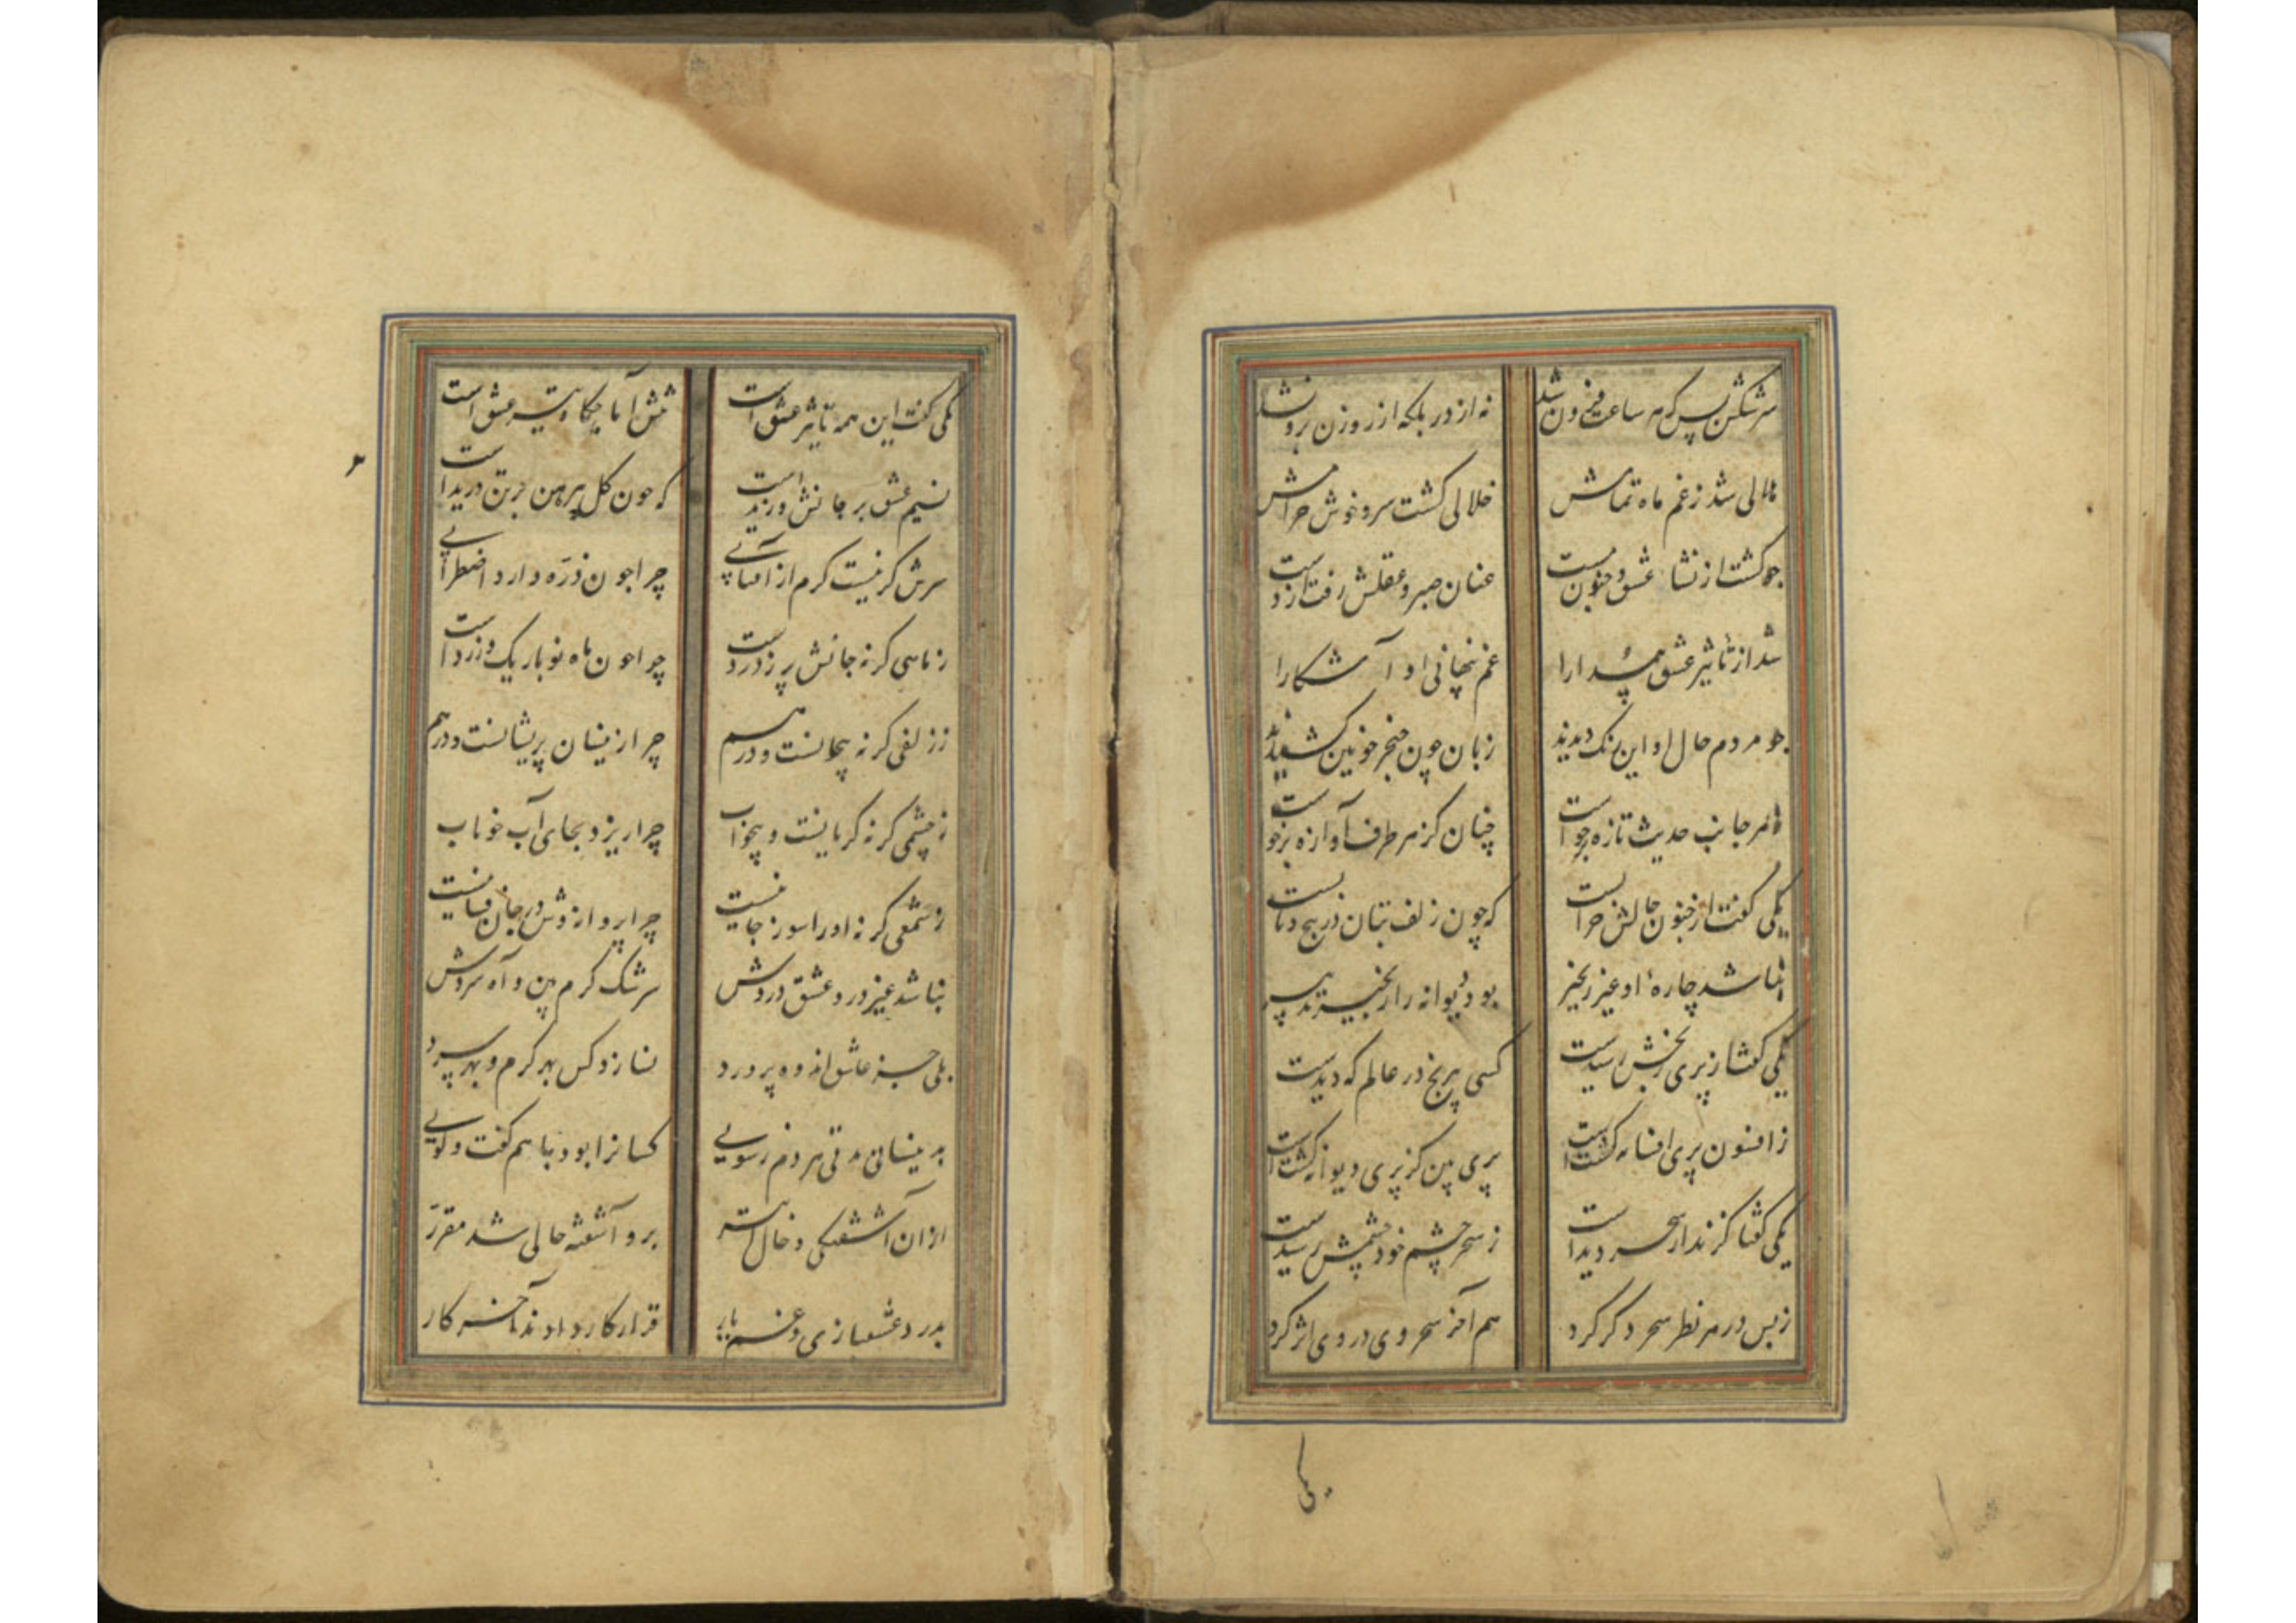 سرشکش بس که هر ساعت فزون شد نه از در بلکه از روزن برون شد
هلالی شد ز غم ماه تمامش خلالی گشت سرو خوش خرامش
چو گشت از نشاء عشق و جنون مست عنان صبر و عقلش رفت از دست
شد از تاثیر عشق پیدا را غم پنهانی او آشکارا
چو مردم حال او این رنک دیدند زبان چون خنجر خونین کشیدند
ز هر جانب حدیث تازه برخواست چنان کز هر طرف آوازه برخواست
یکی گفت از جنون حالش خرابست که چون زلف بتان در پیچ و تابست
نباشد چارهٔ او غیر زنجیر بود دیوانه را زنجیر تدبیر
یکی گفتا ز پری رنجش رسیدست کسی بی رنج در عالم که دیدست
ز افسون پری افسانه گشت است پری بین کز پری دیوانه گشت است
یکی گفتا گزند از سحر دید است ز سحر چشم خود چشمش رسیدست
ز بس در هر نظر سحر دگر کرد هم آخر سحر وی در وی اثر کرد
یکی
یکی گفت این همه تاثیر عشق است تنش آماجگاه تیر عشق است
نسیم عشق بر جانش وزید است که چون گل پیرهن بر تن درید است
سرش گر نیست گرم از آفتابی چرا چون ذره دارد اضطرابی
ز ماهی گر نه جانش پر ز دردست چرا چون ماه نو باریک و زرد است
ز زلفی گر نه پیچانست و درهم چرا زینسان پریشانست و درهم
ز چشمی گر نه گریانست و بیخواب چرا ریزد بجای آب خوناب
ز شمعی گر نه او را سوز جانیست چرا پروانه وش در جان فشانیست
نباشد غیر درد عشق دردش سرشک گرم بین و آه سردش
بلی جز عاشق اندوه پرورد نسازد کس بهر گرم و بهر سرد
بدینسان مدتی هر دم ز سویی کسانرا بود با هم گفت و گویی
از آن آشفتگی و خال بر او آشفته حالی شد مقرر
بدرد عشقبازی و غم یار قرار کار دادند آخر کار